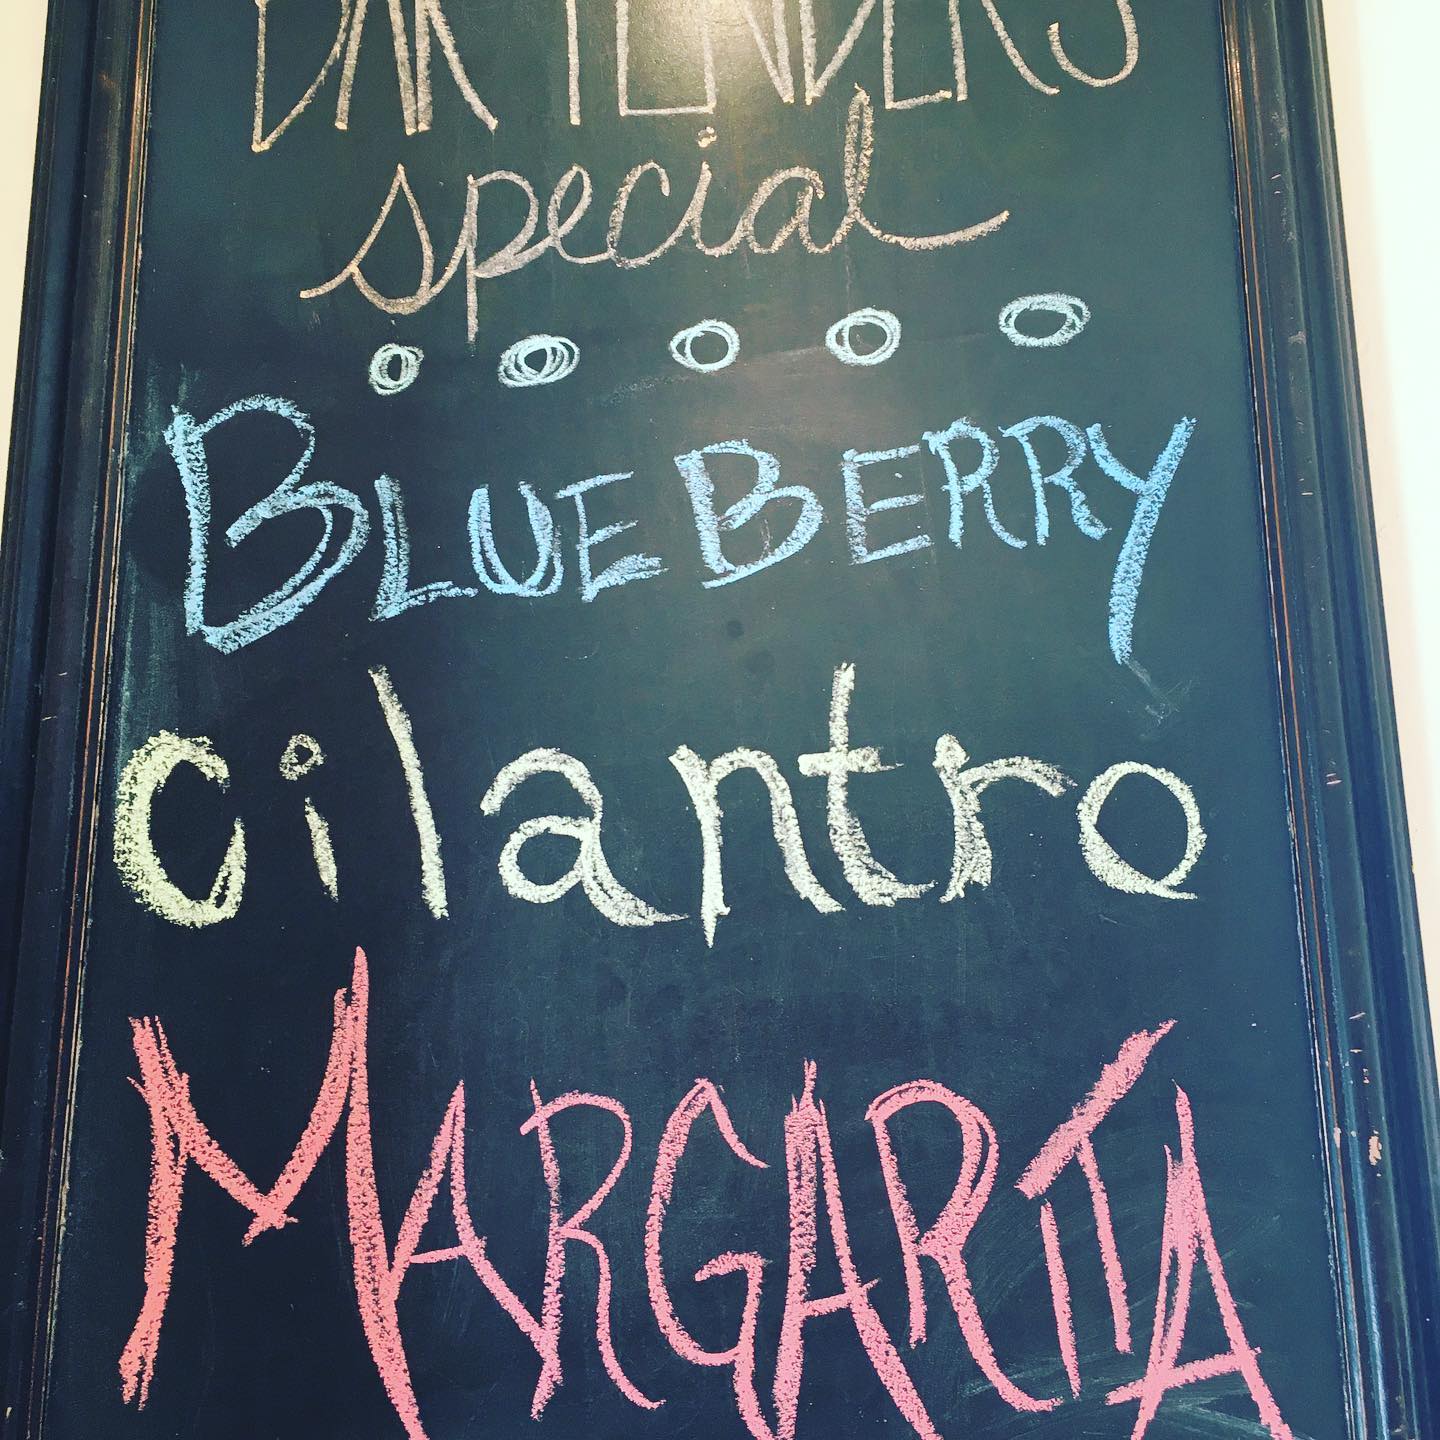 BARTENDERS
special
BLUEBERRY
cilantro
MARGARITA